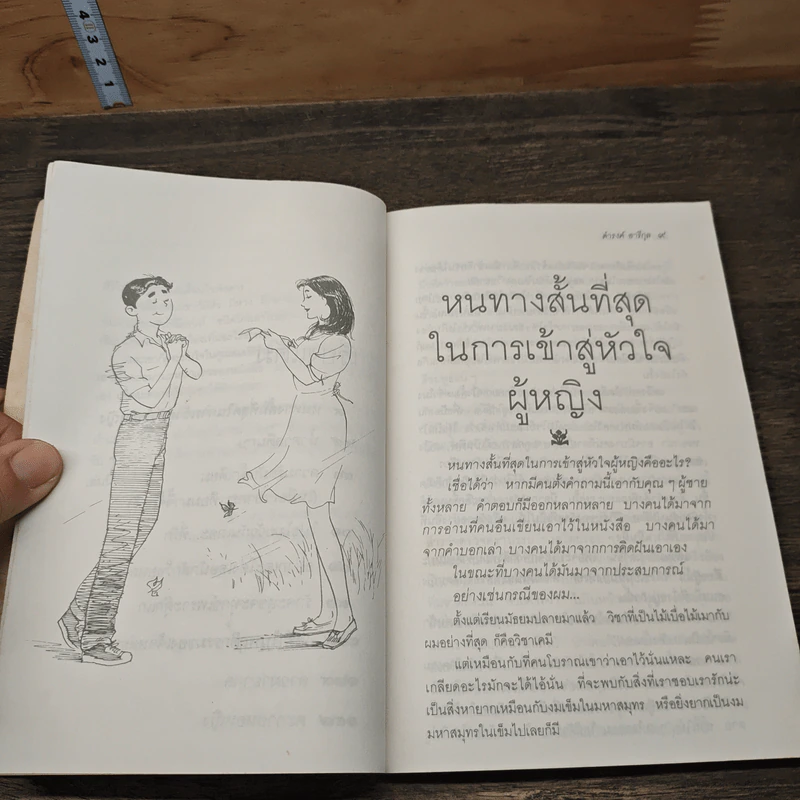 4 3 2 1
ดำรงค์ อารีกุล ๙
หนทางสั้นที่สุด
ในการเข้าสู่หัวใจ
ผู้หญิง
หนทางสั้นที่สุดในการเข้าสู่หัวใจผู้หญิงคืออะไร?
เชื่อได้ว่า หากมีคนตั้งคำถามนี้เอากับคุณ ๆ ผู้ชาย
ทั้งหลาย คำตอบก็มีออกหลากหลาย บางคนได้มาจาก
การอ่านที่คนอื่นเขียนเอาไว้ในหนังสือ บางคนได้มา
จากคำบอกเล่า บางคนได้มาจากการคิดฝันเอาเอง
ในขณะที่บางคนได้มันมาจากประสบการณ์
อย่างเช่นกรณีของผม...
ตั้งแต่เรียนมัธยมปลายมาแล้ว วิชาที่เป็นไม้เบื่อไม้เมากับ
ผมอย่างที่สุด ก็คือวิชาเคมี
แต่เหมือนกับที่คนโบราณเขาว่าเอาไว้นั่นแหละ คนเรา
เกลียดอะไรมักจะได้ไอ้นั่น ที่จะพบกับสิ่งที่เราชอบเรารักน่ะ
เป็นสิ่งหายากเหมือนกับงมเข็มในมหาสมุทร หรือยิ่งยากเป็นงม
มหาสมุทรในเข็มไปเลยก็มี